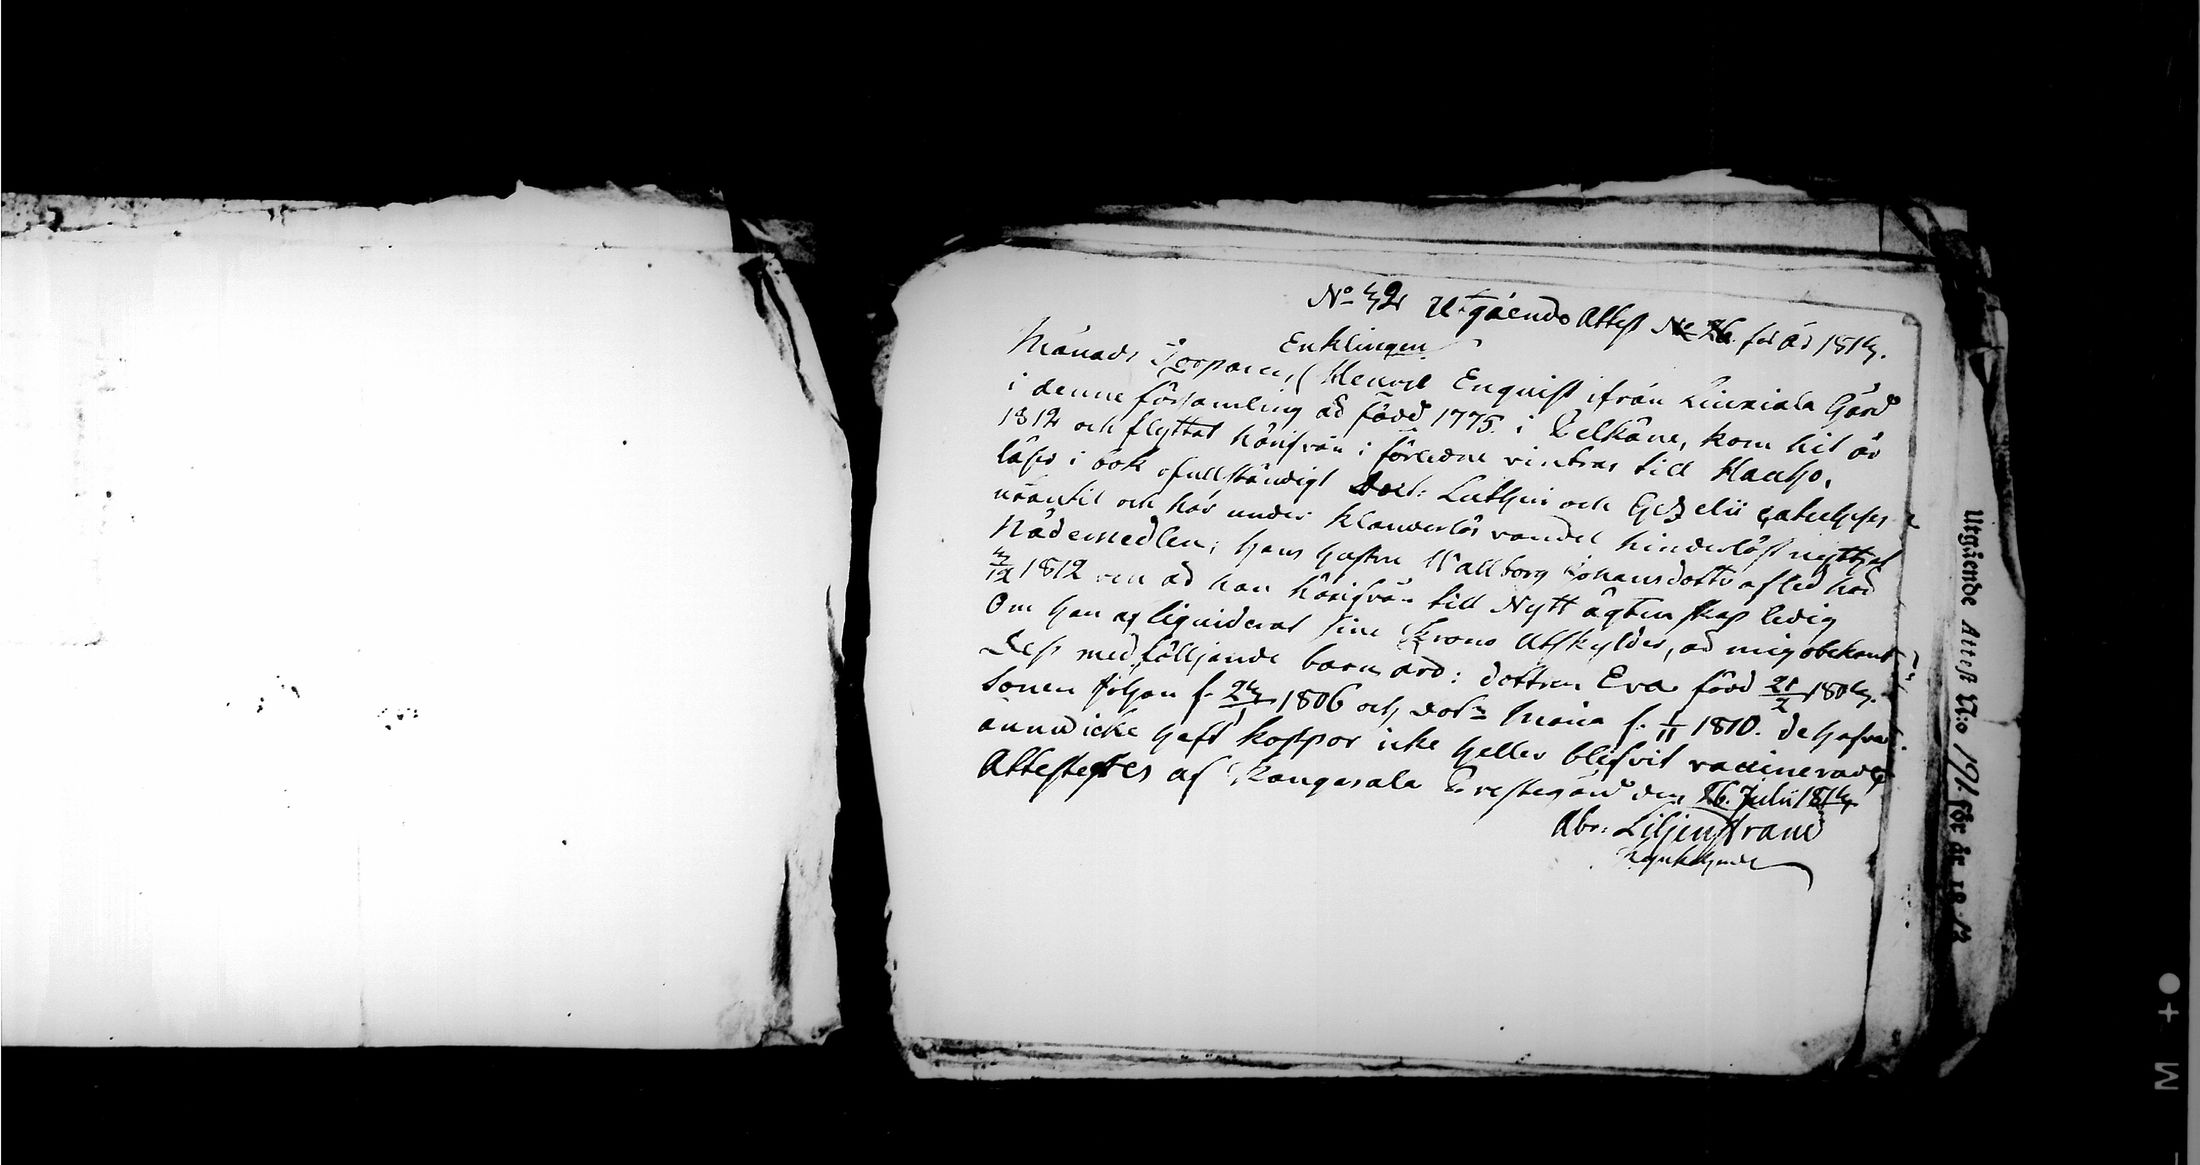 No 42 Utgående Attest No 26. för År 1814.
Enklingen
Månads Torparen, Henric Enquist ifrån Liuxiala Gård
i denne församling är född 1775. i Pelkäne, kom hit år
1812 och flyttat härifrån i förledne vintras till Hauho,
läser i bok ofullständigt Doct: Luthers och Gezelii Catecheser
utantil och har under klanderlös vandel hinderlöst nyttjat
Nådemedlen; hans hustru Wallborg Johansdotter afled här
1812 är han härifrån till Nytt ägtenskap ledig
Om han liquiderat sine Krono Utskylder, är mig obekant
Dess medföljande barn äro: dottren Eva född 21/2 1804.
Sonen Johan f. 24/1 1806 och Maria f. 1/11 1810. de hafva
ännu icke haft koppor icke heller blifvit vaccinerade
Attesteres af Kangasala Prestegård den 26. Julii 1814
Abr: Liljenstrand
Utgående Attest N:o 191. för år
M +